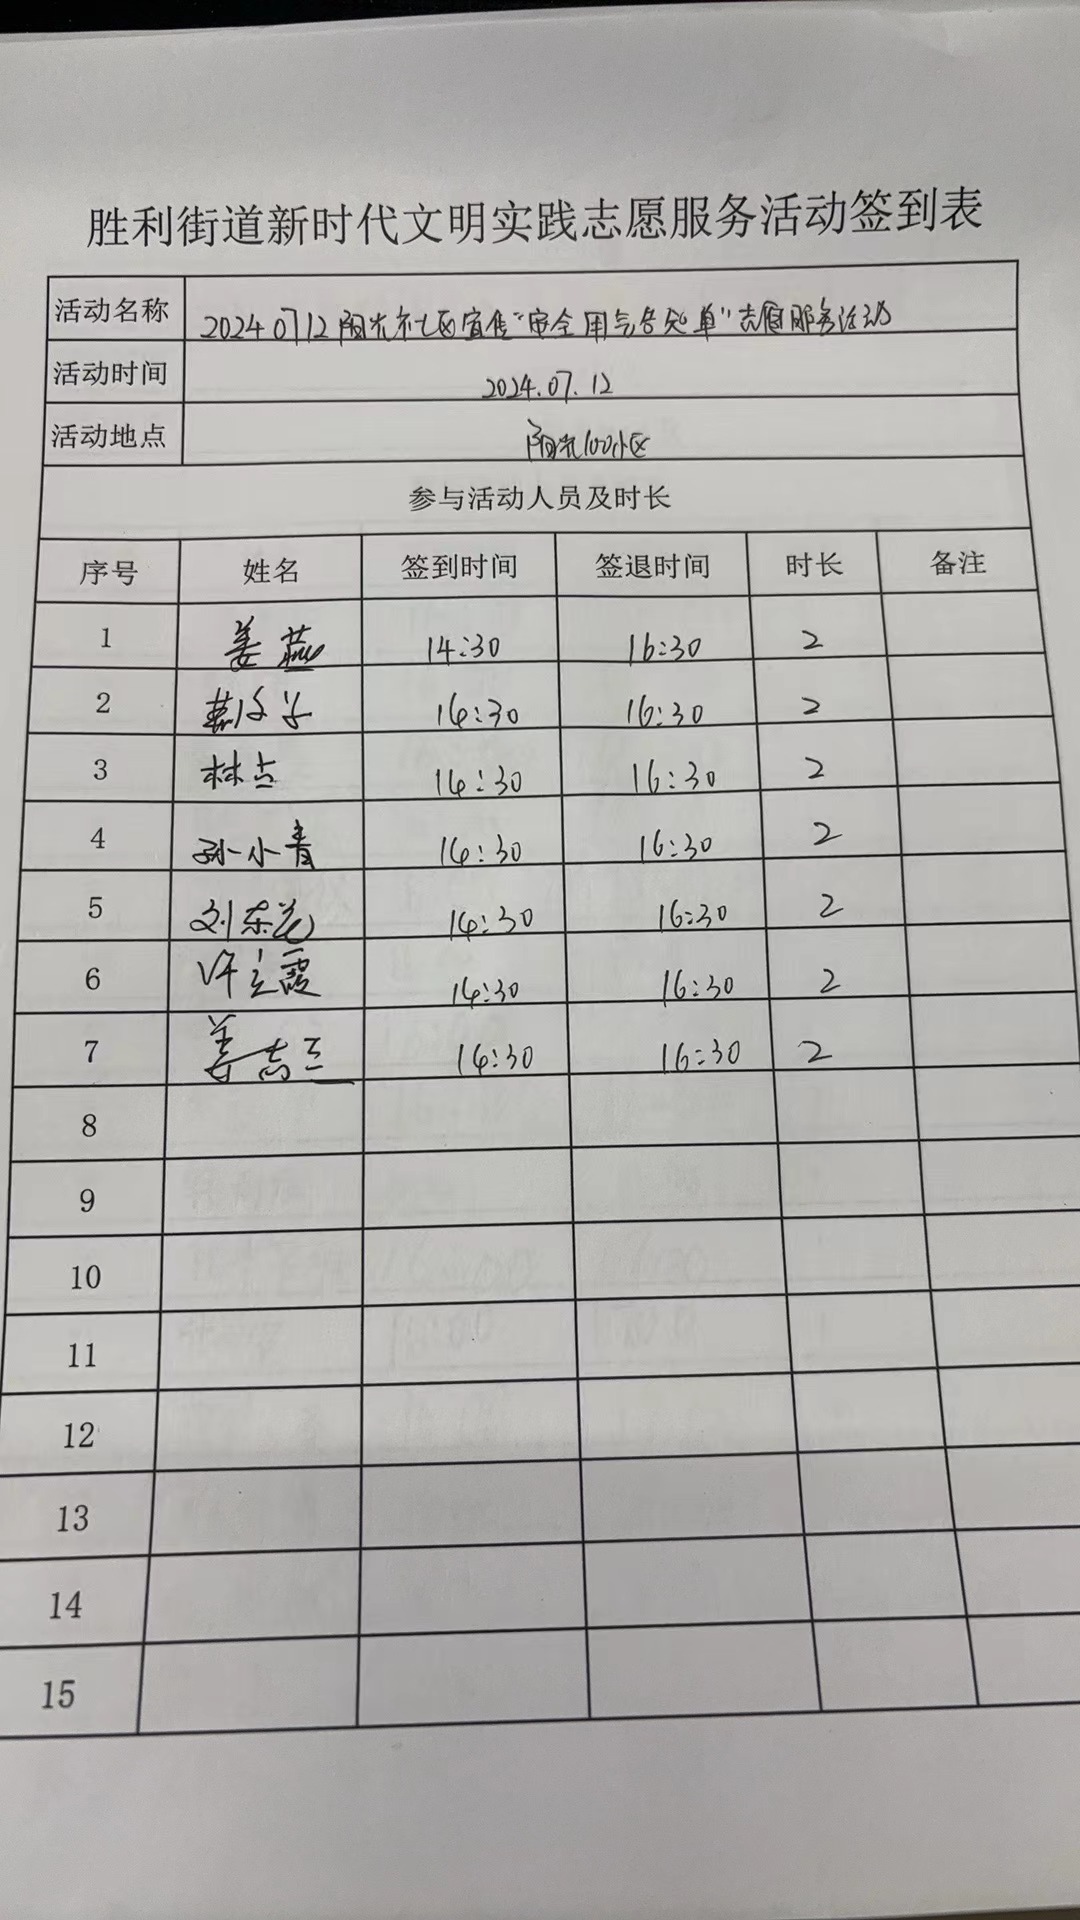 胜利街道新时代文明实践志愿服务活动签到表
活动名称 20240712阳光社区宣传“安全用气告知单”志愿服务活动
活动时间 2024.07.12
活动地点 阳光100小区
参与活动人员及时长
序号 姓名 签到时间 签退时间 时长 备注
1 姜燕 14:30 16:30 2
2 14:30 16:30 2
3 林 14:30 16:30 2
4 孙小青 14:30 16:30 2
5 刘东 14:30 16:30 2
6 许立霞 14:30 16:30 2
7 姜 14:30 16:30 2
8
9
10
11
12
13
14
15